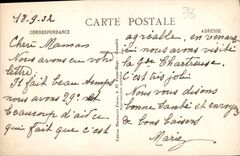 13.9.32
CARTE POSTALE
CORRESPONDANCE
ADRESSE
Chère Maman
Nous avons eu votre
lettre.
Il fait beau temps
nous avons 29° et
beaucoup d'air ce
qui fait que c'est
agréable, en venant
ici nous avons visité
la Gde Chartreuse.
c'est très joli
Nous vous disons
bonne santé et envoyons
de bons baisers
Marie